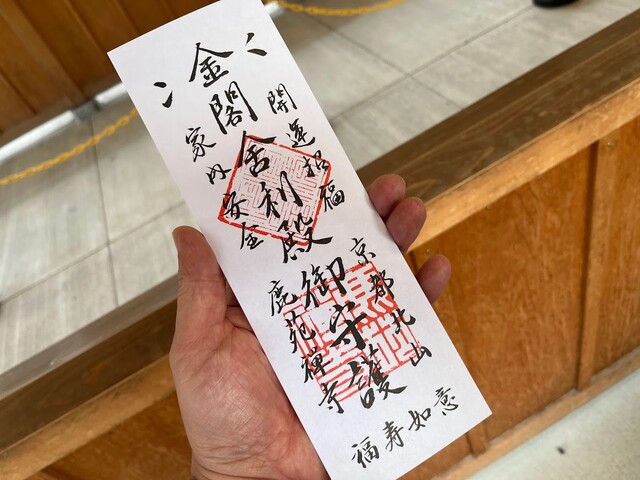 金閣舍利殿御守護
開運招福
家内安全
京都北山
鹿苑禅寺
福寿如意